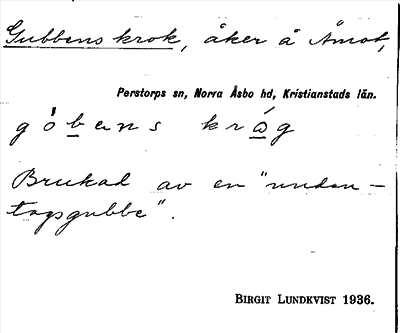 Gubbens krok, åker å Åmot,
Perstorps sn, Norra Åsbo hd, Kristianstads län.
góbens krǻg
Brukad av en "undan-
tagsgubbe".
BIRGIT LUNDKVIST 1936.